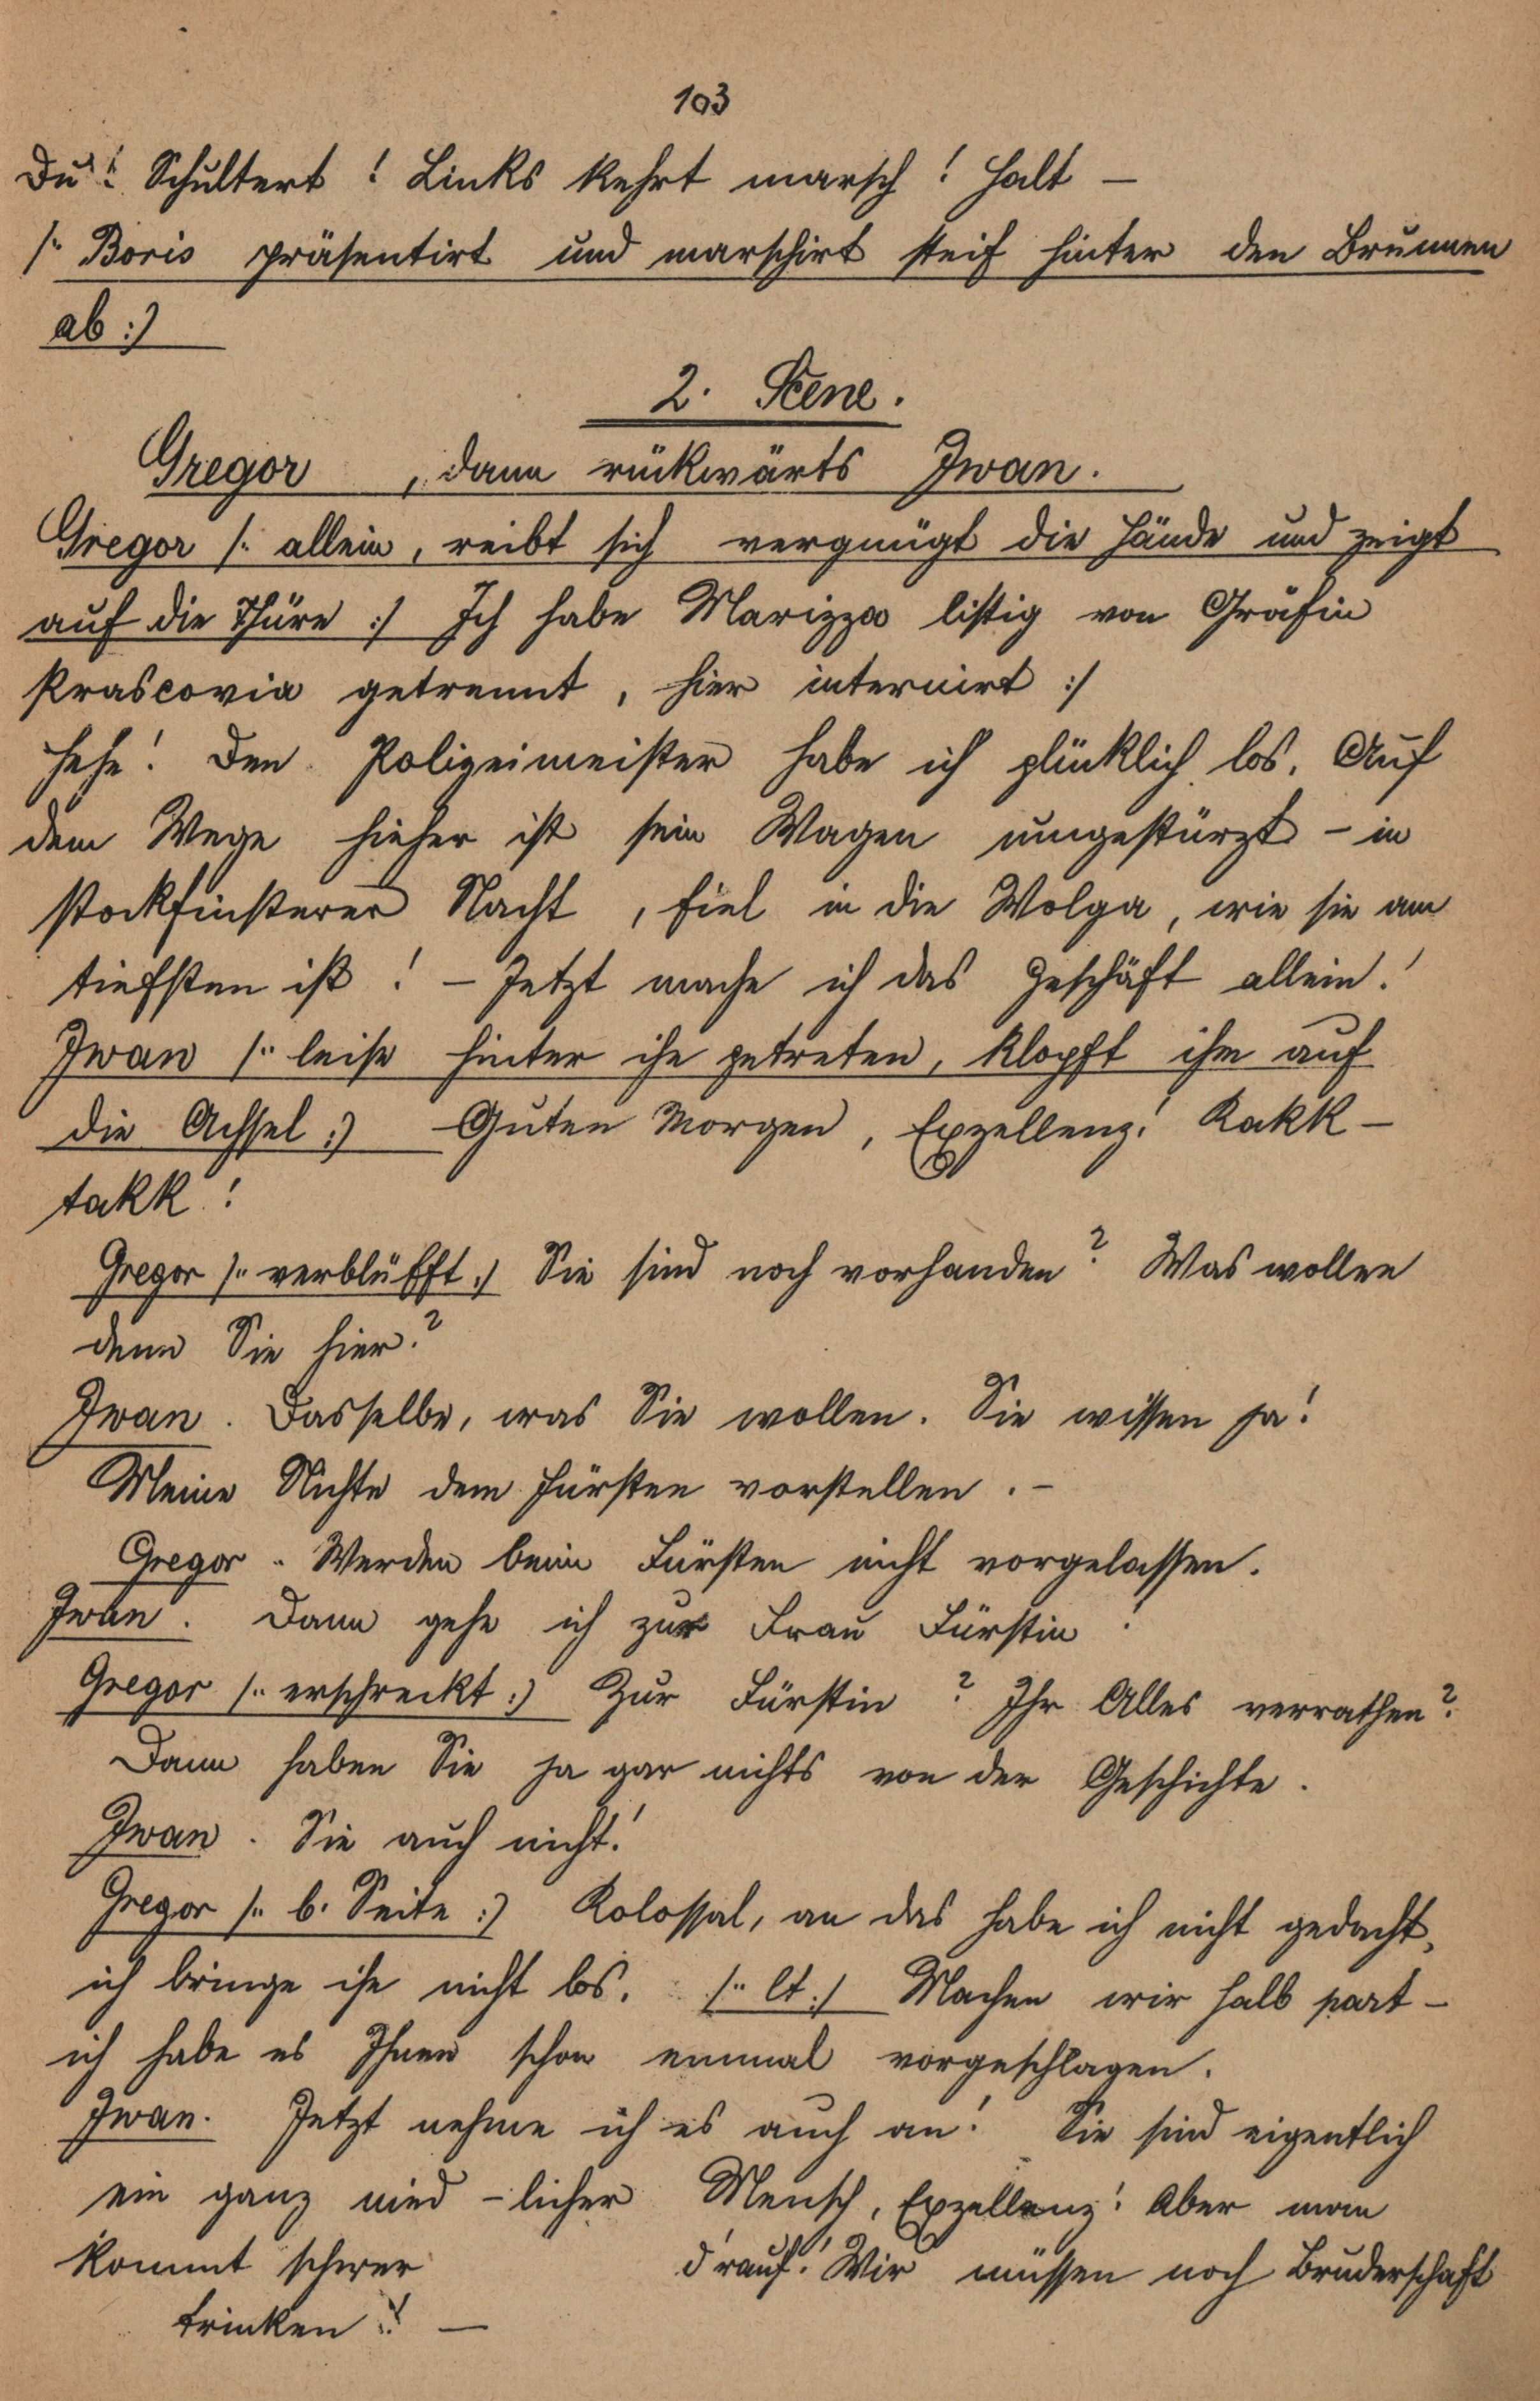 103
Du! Schultert! Links kehrt marsch! Halt –
/: Boris präsentirt und marschirt steif hinter den Brunnen
ab :/
2. Scene.
Gregor, dann rückwärts Iwan.
Gregor /: allein, reibt sich vergnügt die Hände und zeigt
auf die Thüre :/ Ich habe Marizza listig von Gräfin
Krascovia getrennt, hier internirt :/
Hehe! Den Polizeimeister habe ich glücklich los. Auf
dem Wege hieher ist sein Wagen umgestürzt – in
stockfinsterer Nacht, fiel in die Wolga, wie sie am
tiefsten ist! – Jetzt mache ich das Geschäft allein!
Iwan /: leise hinter ihn getreten, klopft ihm auf
die Achsel :/ Guten Morgen, Exzellenz! Kakk-
takk!
Gregor /: verblüfft :/ Sie sind noch vorhanden? Was wollen
denn Sie hier?
Iwan. Dasselbe, was Sie wollen. Sie wissen ja!
Meine Nichte dem Fürsten vorstellen. –
Gregor. Werden beim Fürsten nicht vorgelassen.
Iwan. Dann gehe ich zur Frau Fürstin!
Gregor /: erschreckt :/ Zur Fürstin? Ihr Alles verrathen?
Dann haben Sie ja gar nichts von der Geschichte.
Iwan. Sie auch nicht!
Gregor /: b. Seite :/ Kolossal, an das habe ich nicht gedacht,
ich bringe ihn nicht los. /: lt :/ Machen wir halb part –
ich habe es Ihnen schon einmal vorgeschlagen.
Iwan. Jetzt nehme ich es auch an! Sie sind eigentlich
ein ganz nied-licher Mensch, Exzellenz! Aber man
kommt schwer d'rauf! Wir müssen noch Bruderschaft
trinken! –